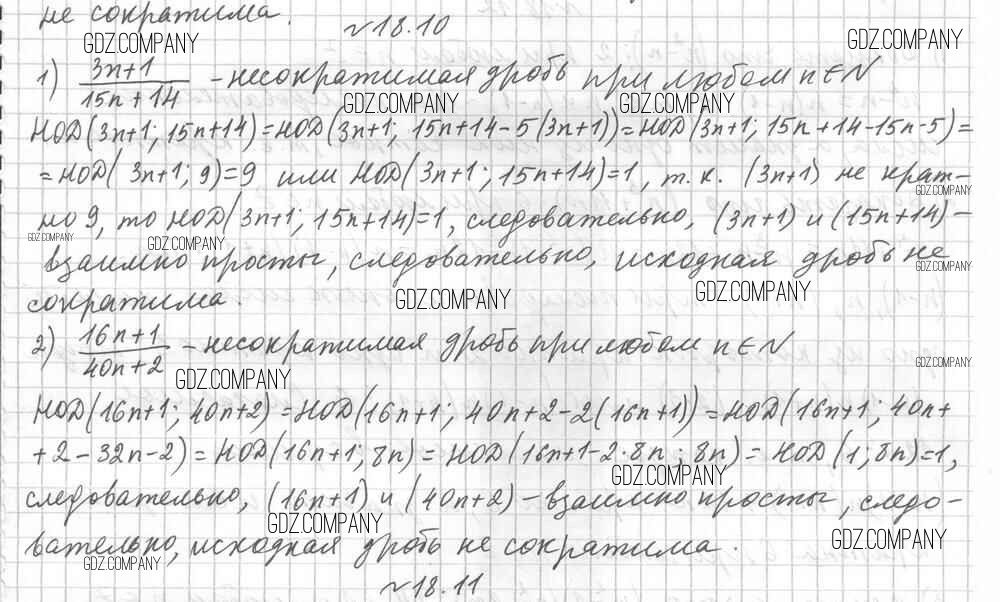 не сократима.
№18.10
GDZ.COMPANY GDZ.COMPANY
1) 3n+1/15n+14 - несократимая дробь при любом n∈N
GDZ.COMPANY GDZ.COMPANY
НОД(3n+1; 15n+14)=НОД(3n+1; 15n+14-5(3n+1))=НОД(3n+1; 15n+14-15n-5)=
=НОД(3n+1; 9)=9 или НОД(3n+1; 15n+14)=1, т.к. (3n+1) не крат-
GDZ.COMPANY
но 9, то НОД(3n+1; 15n+14)=1, следовательно, (3n+1) и (15n+14)-
GDZ.COMPANY GDZ.COMPANY
взаимно просты, следовательно, исходная дробь не
GDZ.COMPANY
сократима.
GDZ.COMPANY GDZ.COMPANY
2) 16n+1/40n+2 - несократимая дробь при любом n∈N
GDZ.COMPANY GDZ.COMPANY
НОД(16n+1; 40n+2)=НОД(16n+1; 40n+2-2(16n+1))=НОД(16n+1; 40n+
+2-32n-2)=НОД(16n+1; 8n)=НОД(16n+1-2·8n; 8n)=НОД(1; 8n)=1,
GDZ.COMPANY
следовательно, (16n+1) и (40n+2) - взаимно просты, следо-
GDZ.COMPANY GDZ.COMPANY
вательно, исходная дробь не сократима.
GDZ.COMPANY
№18.11